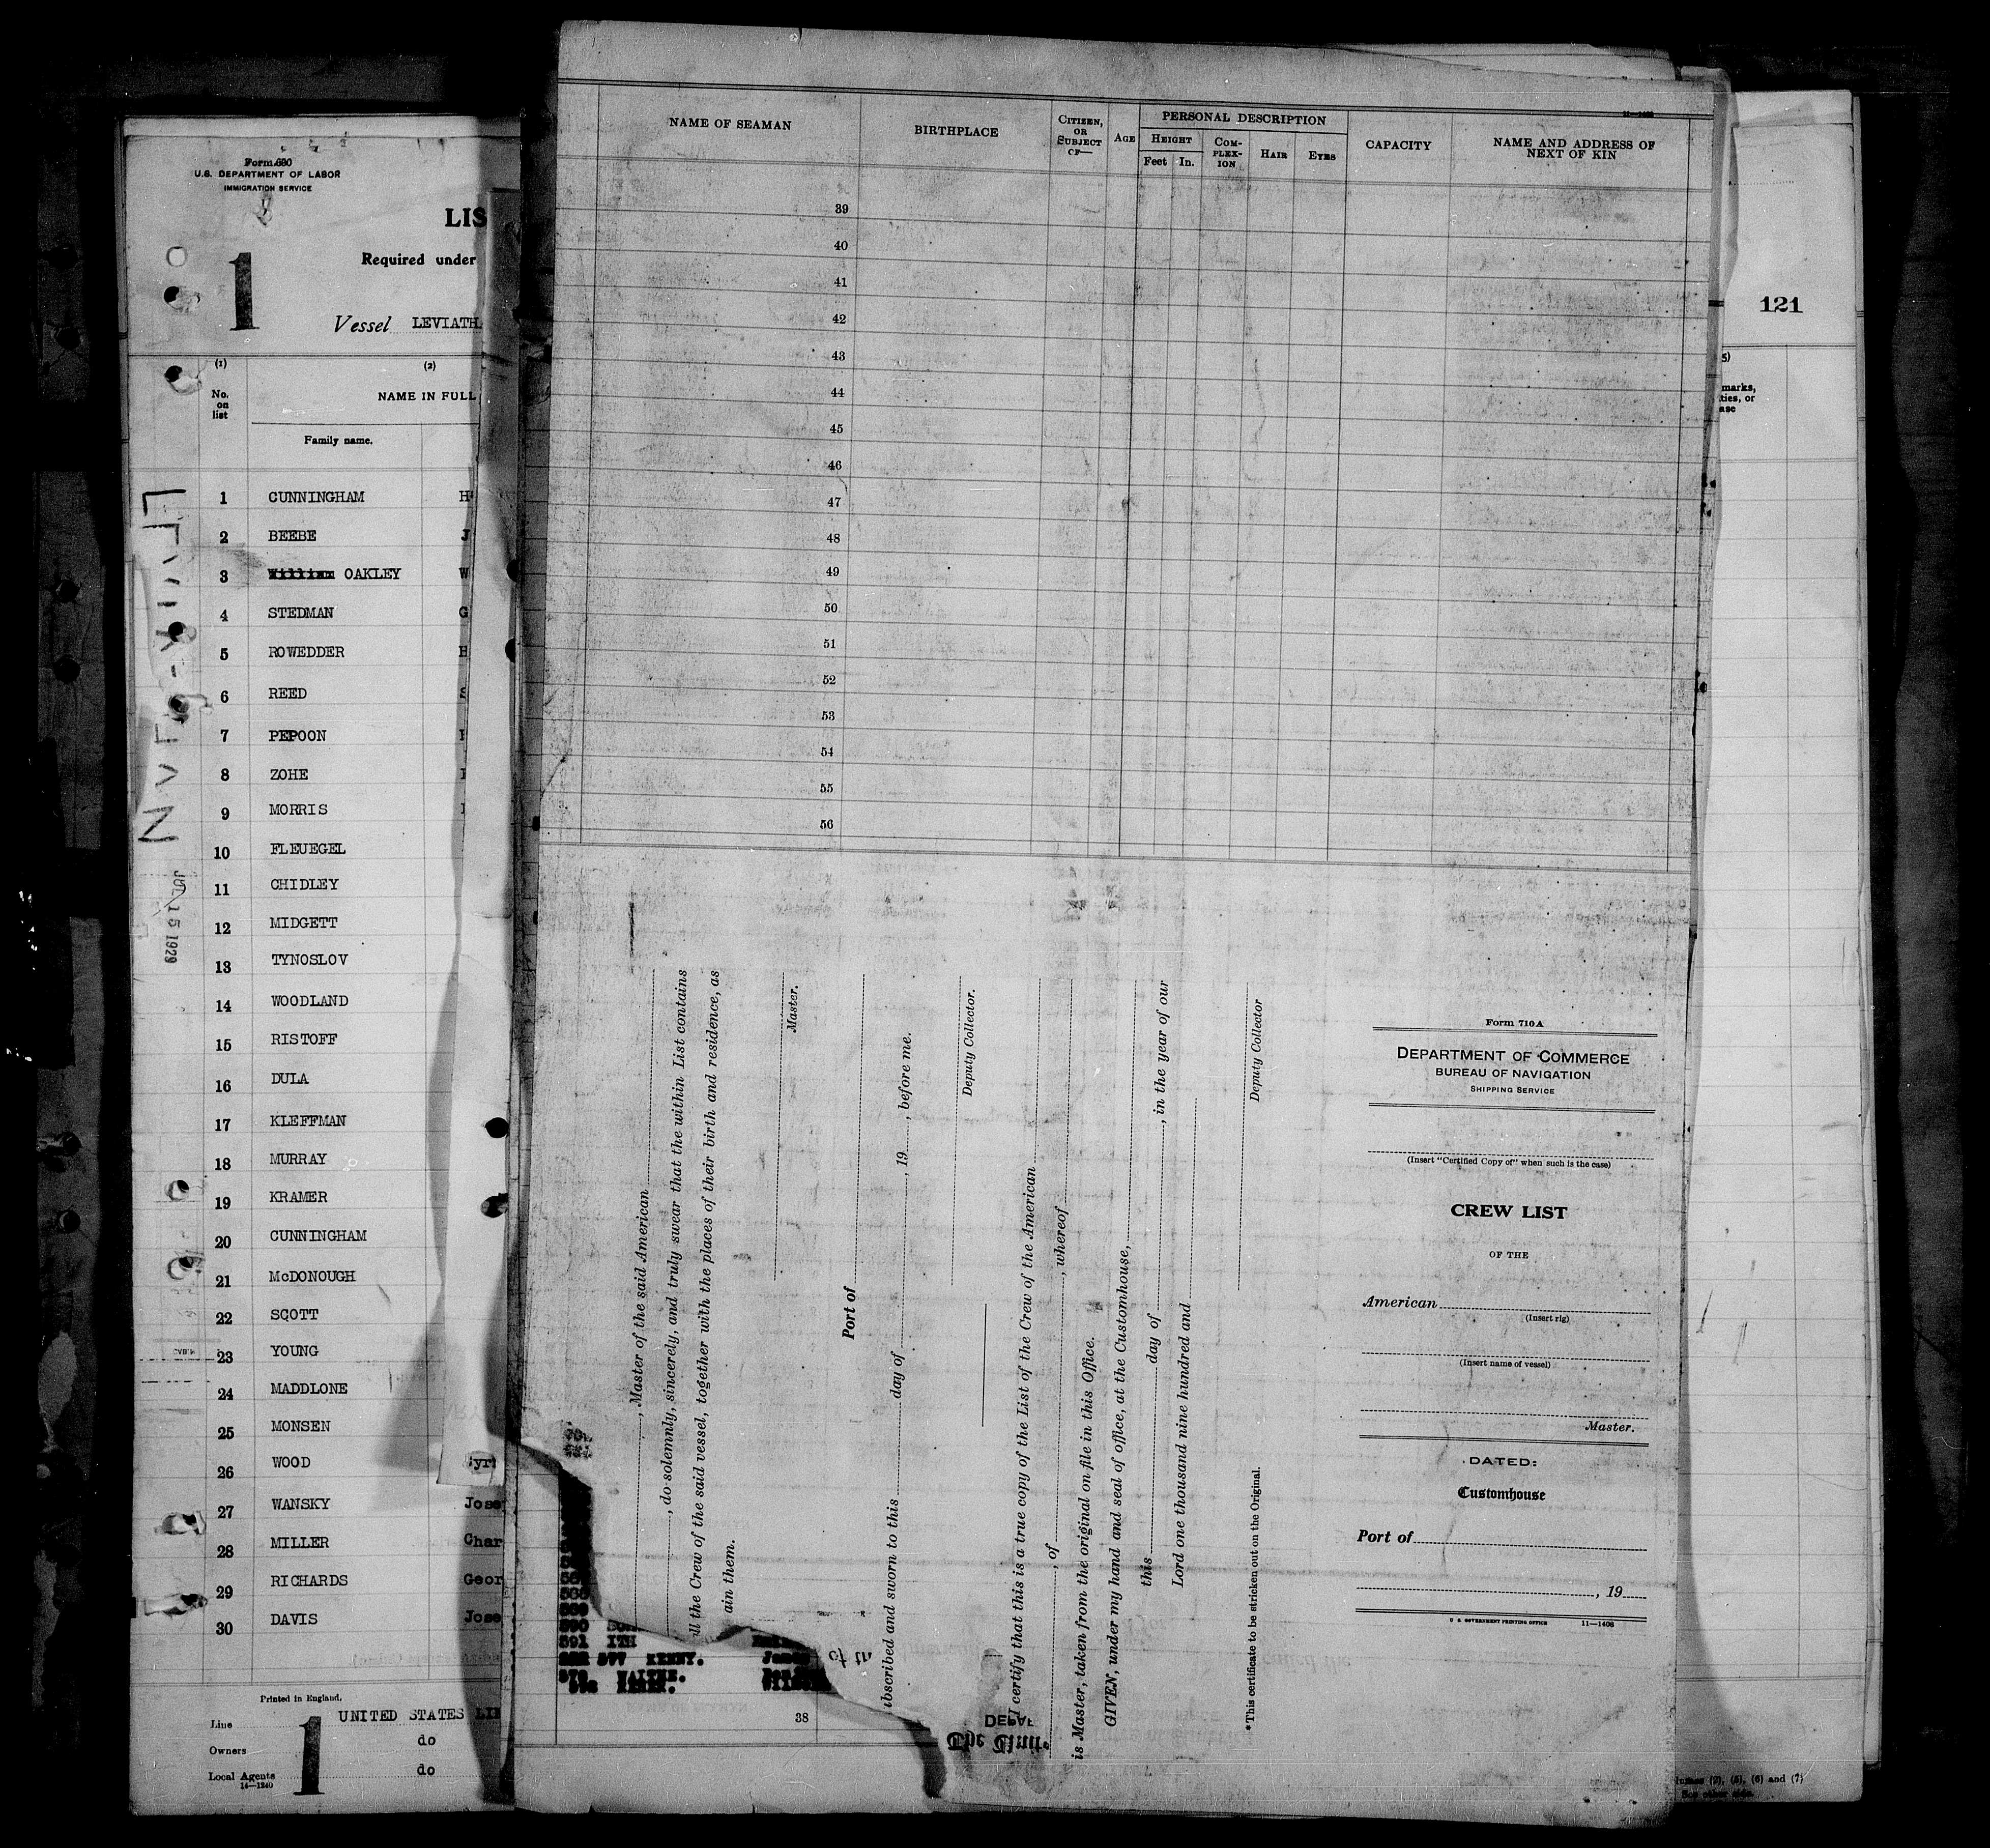 Form 680
U.S. DEPARTMENT OF LABOR
IMMIGRATION SERVICE
LIS
1
Required under
Vessel LEVIATH
(1)
(2)
No.
on
list
NAME IN FULL
Family name.
1 CUNNINGHAM H
2 BEEBE J
3 William OAKLEY W
4 STEDMAN G
5 ROWEDDER H
6 REED S
7 PEPOON
8 ZOHE
9 MORRIS
10 FLEUEGEL
11 CHIDLEY
12 MIDGETT
13 TYNOSLOV
14 WOODLAND
15 RISTOFF
16 DULA
17 KLEFFMAN
18 MURRAY
19 KRAMER
20 CUNNINGHAM
21 McDONOUGH
22 SCOTT
23 YOUNG
24 MADDLONE
25 MONSEN
26 WOOD yr
27 WANSKY Jose
28 MILLER Char
29 RICHARDS Geor
30 DAVIS Jose
LEVIATHAN
15 1929
Printed in England.
Line UNITED STATES LIN
Owners do
Local Agents do
14—1240
1
NAME OF SEAMAN
BIRTHPLACE
CITIZEN,
OR
SUBJECT
OF—
AGE
PERSONAL DESCRIPTION
HEIGHT
Feet In.
COM-
PLEX-
ION
HAIR
EYES
CAPACITY
NAME AND ADDRESS OF
NEXT OF KIN
39
40
41
42
43
44
45
46
47
48
49
50
51
52
53
54
55
56
, Master of the said American
, do solemnly, sincerely, and truly swear that the within List contains
ll the Crew of the said vessel, together with the places of their birth and residence, as
ain them.
Master.
Port of
ubscribed and sworn to this day of , 19 , before me.
Deputy Collector.
I certify that this is a true copy of the List of the Crew of the American
, of , whereof
is Master, taken from the original on file in this Office.
GIVEN, under my hand and seal of office, at the Customhouse,
this day of , in the year of our
Lord one thousand nine hundred and
Deputy Collector
*This certificate to be stricken out on the Original.
Form 710A
DEPARTMENT OF COMMERCE
BUREAU OF NAVIGATION
SHIPPING SERVICE
(Insert "Certified Copy of" when such is the case)
CREW LIST
OF THE
American
(Insert rig)
(Insert name of vessel)
Master.
DATED:
Customhouse
Port of
, 19
U. S. GOVERNMENT PRINTING OFFICE 11—1408
590
591 ITH
577 KENNY. James
579 WAITHE.
38
DEPAR
The Unit
121
5)
marks,
ties, or
ase
(2), (5), (6) and (7)
See other side.